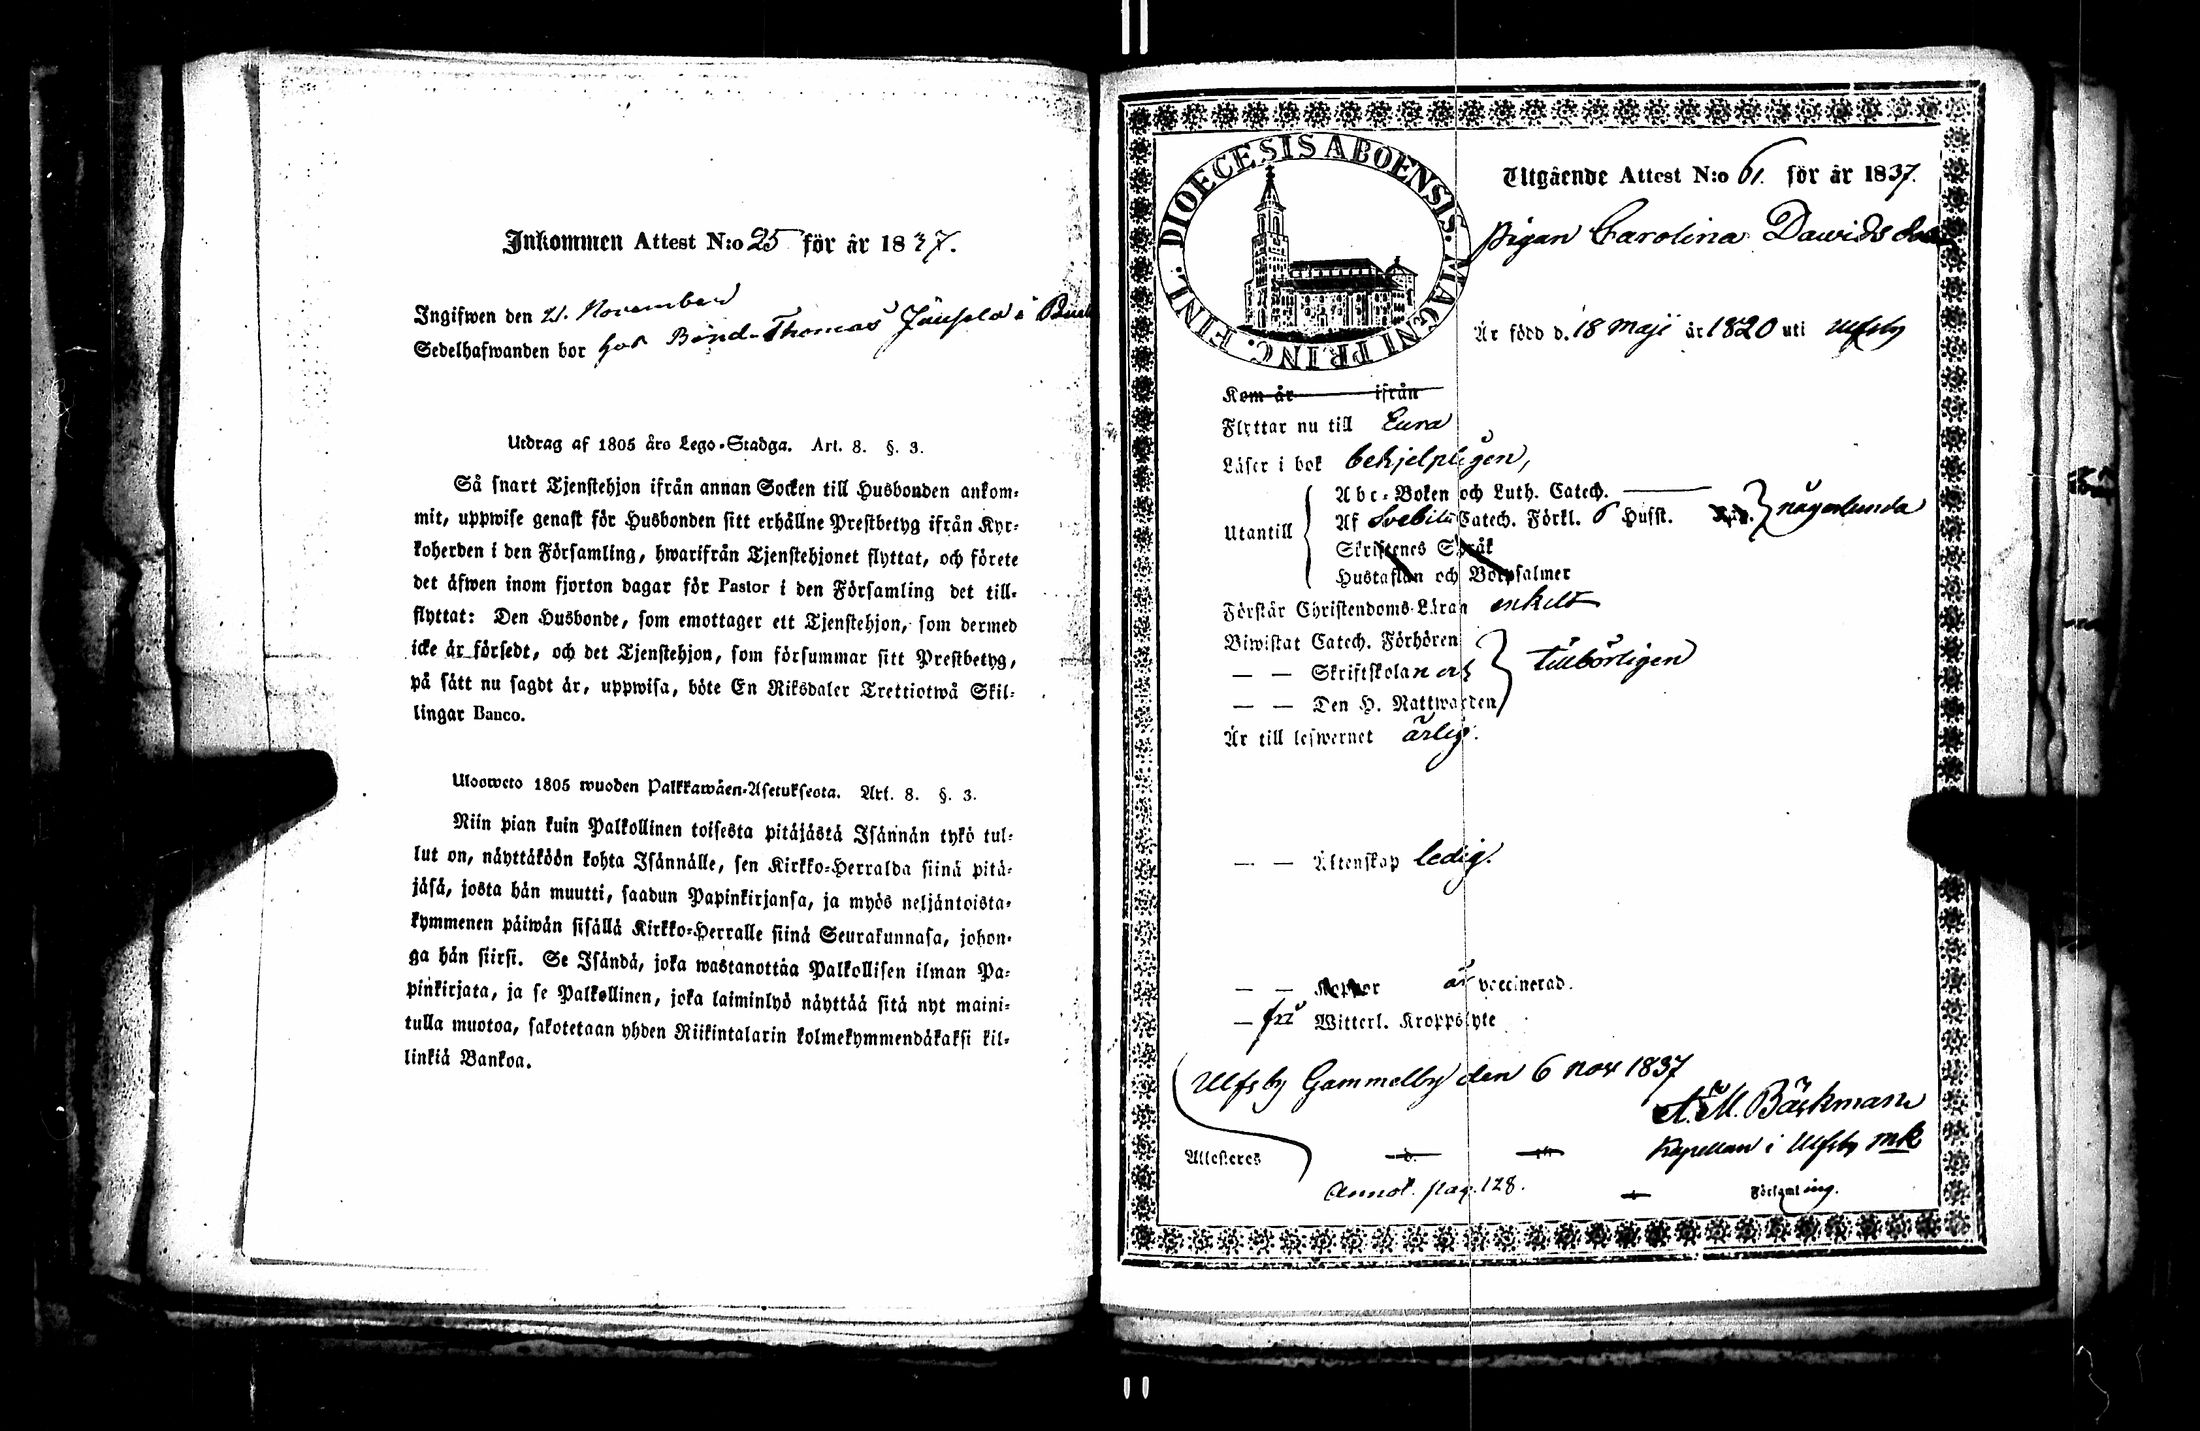 Inkommen Attest N:o 25 för år 1837.
Ingifwen den 21. November
Sedelhafwanden bor hos Bond. Thomas
Utdrag af 1805 års Lego-Stadga. Art. 8. §. 3.
Så snart Tjenstehjon ifrån annan Socken till Husbonden ankom-
mit, uppwise genast för Husbonden sitt erhållne Prestbetyg ifrån Kyr-
koherden i den Församling, hwarifrån Tjenstehjonet flyttat, och förete
det äfwen inom fjorton dagar för Pastor i den Församling det till-
flyttat: Den Husbonde, som emottager ett Tjenstehjon, som dermed
icke är försedt, och det Tjenstehjon, som försummar sitt Prestbetyg,
på sätt nu sagdt är, uppwisa, böte En Riksdaler Trettiotwå Skil-
lingar Banco.
Ulosweto 1805 wuoden Palkkawäen-Asetuksesta. Art. 8. §. 3.
Niin pian kuin Palkollinen toisesta pitäjästä Isännän tykö tul-
lut on, näyttäköön kohta Isännälle, sen Kirkko-Herralda siinä pitä-
jäsä, josta hän muutti, saadun Papinkirjansa, ja myös neljäntoista-
kymmenen päiwän sisällä Kirkko-Herralle siinä Seurakunnasa, johon-
ga hän siirsi. Se Isändä, joka wastanottaa Palkollisen ilman Pa-
pinkirjata, ja se Palkollinen, joka laiminlyö näyttää sitä nyt maini-
tulla muotoa, sakotetaan yhden Riikintalarin kolmekymmendäkaksi kil-
linkiä Bankoa.
DIOECESIS ABOENSIS. MAGNI PRINC. FINL.
Utgående Attest N:o 61. för år 1837.
Pigan Carolina Davids dotter
Är född d. 18 Maji år 1820 uti Ulfsby
Kom år ifrån
Flyttar nu till Eura
Läser i bok behjelpligen,
Utantill
Abc-Boken och Luth. Catech.
Af Svebilii Catech. Förkl. 6 Hufst. någorlunda
Skriftenes Språk
Hustaflan och Botpsalmer
Förstår Christendoms-Läran enkelt
Biwistat Catech. Förhören
— — Skriftskolan och tillbörligen
— — Den H. Nattwarden
Är till lefwernet ärlig.
— — Äktenskap ledig.
— — Koppor är vaccinerad.
— fri Witterl. Kroppslyte
Ulfsby Gammelby den 6 Nov 1837
A. M. Bäckman
Kapellan i Ulfsby mk
Attesteres d. år
Annot. pag. 128.
Församling.